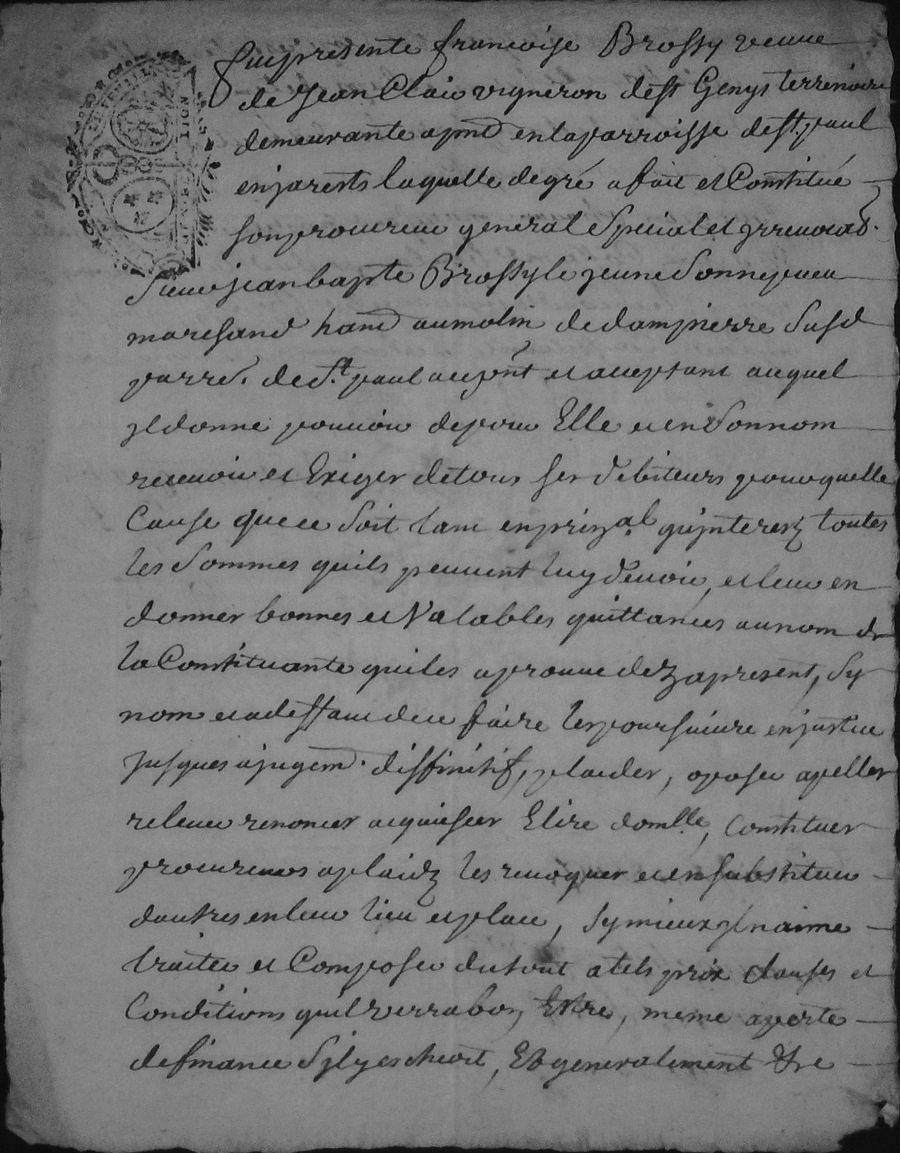 fut presente francoise Brossy veuve
de Jean Clair vigneron de St Genys terrenoire
demeurante apnt en la parroisse de St paul
en jarests laquelle de gré a fait et Constitué
son procureur general Special et jrrevocab.
Sieur jean bapte Brossy le jeune Son nepveu
marchand hant au molin de dampierre Susd
parre. de St. paul acy pnt et acceptant auquel
jl donne pouvoir de pour Elle et en Son nom
recevoir et Exiger de tous ses debiteurs pour quelle
Cause que ce Soit tant en prinzal qu'jnterez toutes
les Sommes quils peuvent luy devoir, et leur en
donner bonnes et Valables quittances au nom de
la Constituante quil les aprouve dez apresent, Sy
nom et a deffaut de ce faire les poursuivre en justice
jusques a jugemt. diffinitif, plaider, oposer apeller
relever renoncer acquiescer Elire domlle, Constituer
procureurs a plaidz les revoquer et en substituer
dautres en leur lieu et place, Sy mieux jl naime
traiter et Composer du tout a tels prix clauses et
Conditions quil verra bon Estre, meme a perte
de finance Sil y escheoit, Et generalement Estre